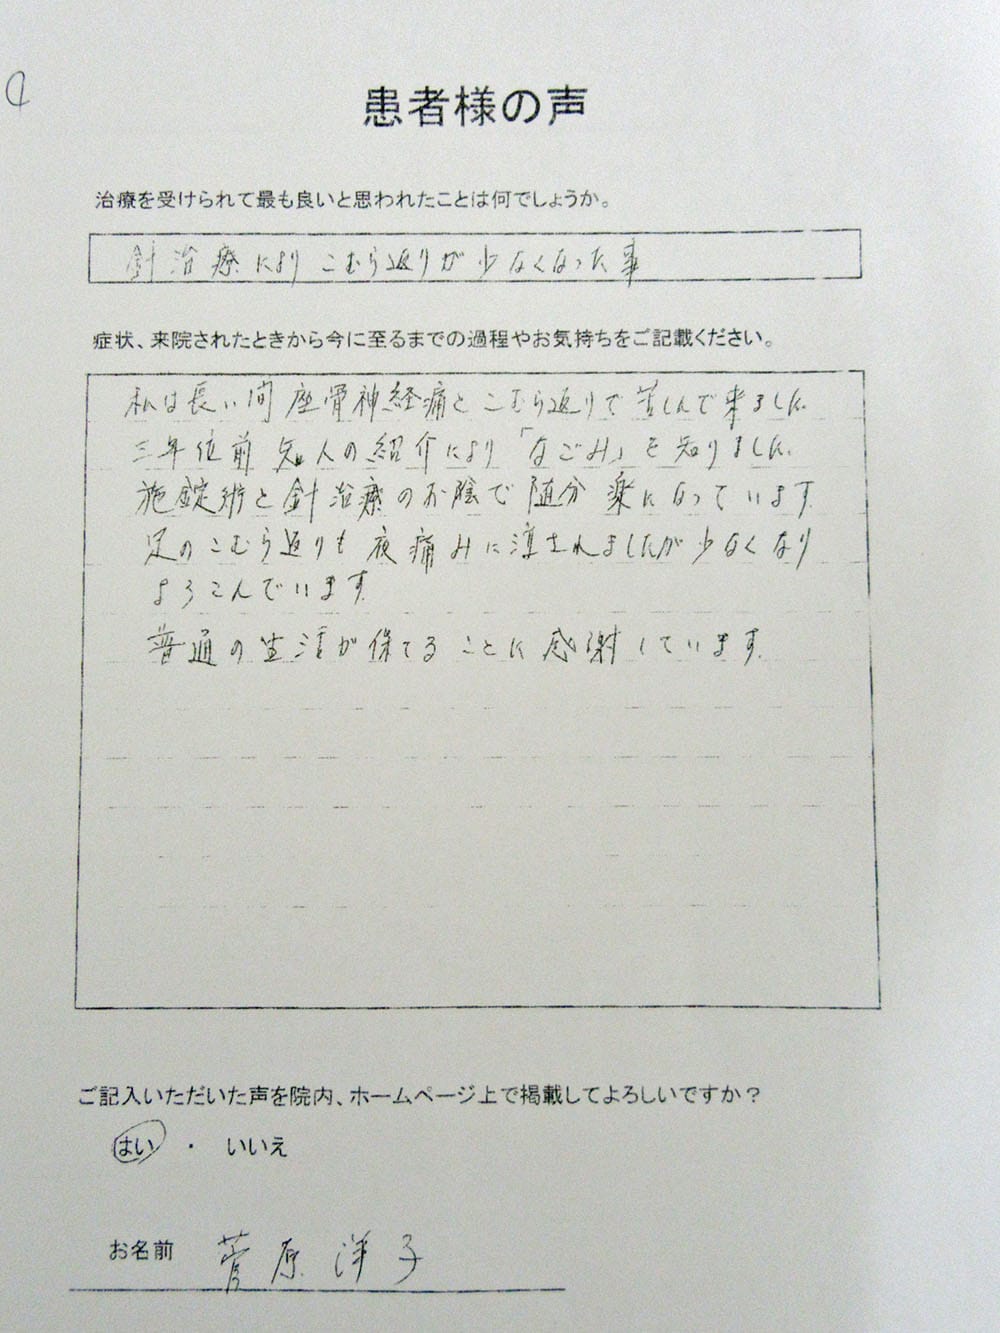 患者様の声
治療を受けられて最も良いと思われたことは何でしょうか。
針治療により こむら返りが少なくなった事
症状、来院されたときから今に至るまでの過程やお気持ちをご記載ください。
私は長い間 座骨神経痛と こむら返りで 苦しんで来ました。
三年位前 知人の紹介により「なごみ」を知りました。
施錠術と針治療のお陰で 随分 楽になっています
足のこむら返りも 夜痛みに されましたが少なくなり
よろこんでいます
普通の生活が保てることに 感謝しています。
ご記入いただいた声を院内、ホームページ上で掲載してよろしいですか？
はい ・ いいえ
お名前 菅原洋子